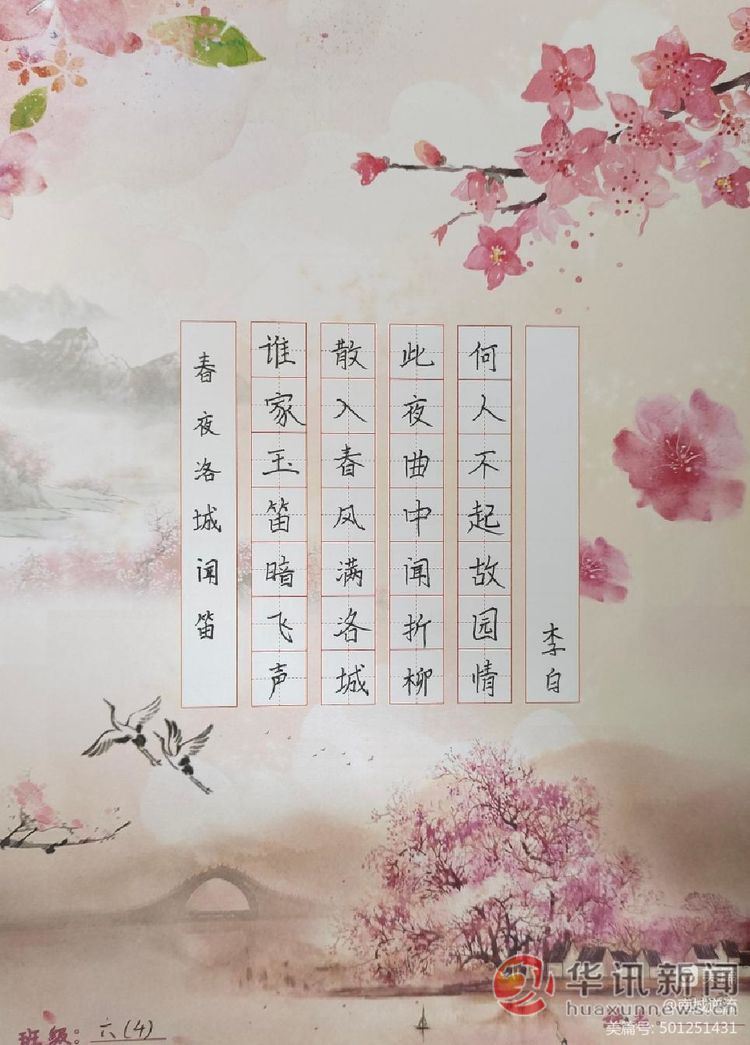 春夜洛城闻笛
谁家玉笛暗飞声
散入春风满洛城
此夜曲中闻折柳
何人不起故园情
李白
班级：六(4)
华讯新闻
huaxunnews.cn
@南城逆流
美篇号: 501251431